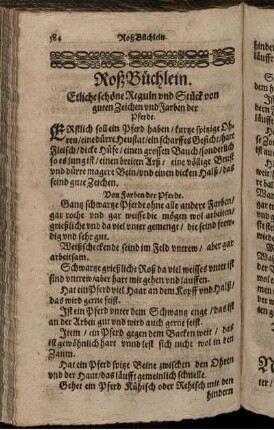 184 Roß Büchlein.
Roß Büchlein.
Etliche schöne Reguln vnd Stück von
guten Zeichen vnd Farben der
Pferde.
ERstlich soll ein Pferd haben / kurtze spitzige Oh-
ren / eine dürre / ein scharffes Gesicht / hart
Fleisch / dicke Hüff / einen grossen Bauch / sonderlich
so es jung ist / einen breiten Arß / eine völlige Brust
vnd dürre magere Bein / vnd einen dicken Halß / das
seind gute Zeichen.
Von Farben der Pferde.
Gang schwartze Pferde ohne alle andere Farben /
gar rothe vnd gar weisse die mögen wol arbeiten /
grießlicht vnd da viel vnter gemenge / die seind frew-
dig vnd sehr gut.
Weißscheckende seind im Feld vntrew / aber gar
arbeitsam.
Schwartze grießlichte Roß da viel weisses vnter ist
sind vntrew / aber hart mit gehen vnd lauffen.
Hat ein Pferd viel Haar an dem Kopff vnd Halß /
das wird gerne feist.
Ist ein Pferd vnter dem Schwang enge / das ist
an der Arbeit gut vnd wird auch gerne feist.
Item / ein Pferd gegen dem Backen weit / das
ist gewöhnlich hart vnnd lest sich nicht wol in den
Zaum.
Hat ein Pferd spitze Beine zwischen den Ohren
vnd der Haut / das läufft gemeinlich schnelle.
Gehet ein Pferd Kühisch oder Rehisch mit den
hindern